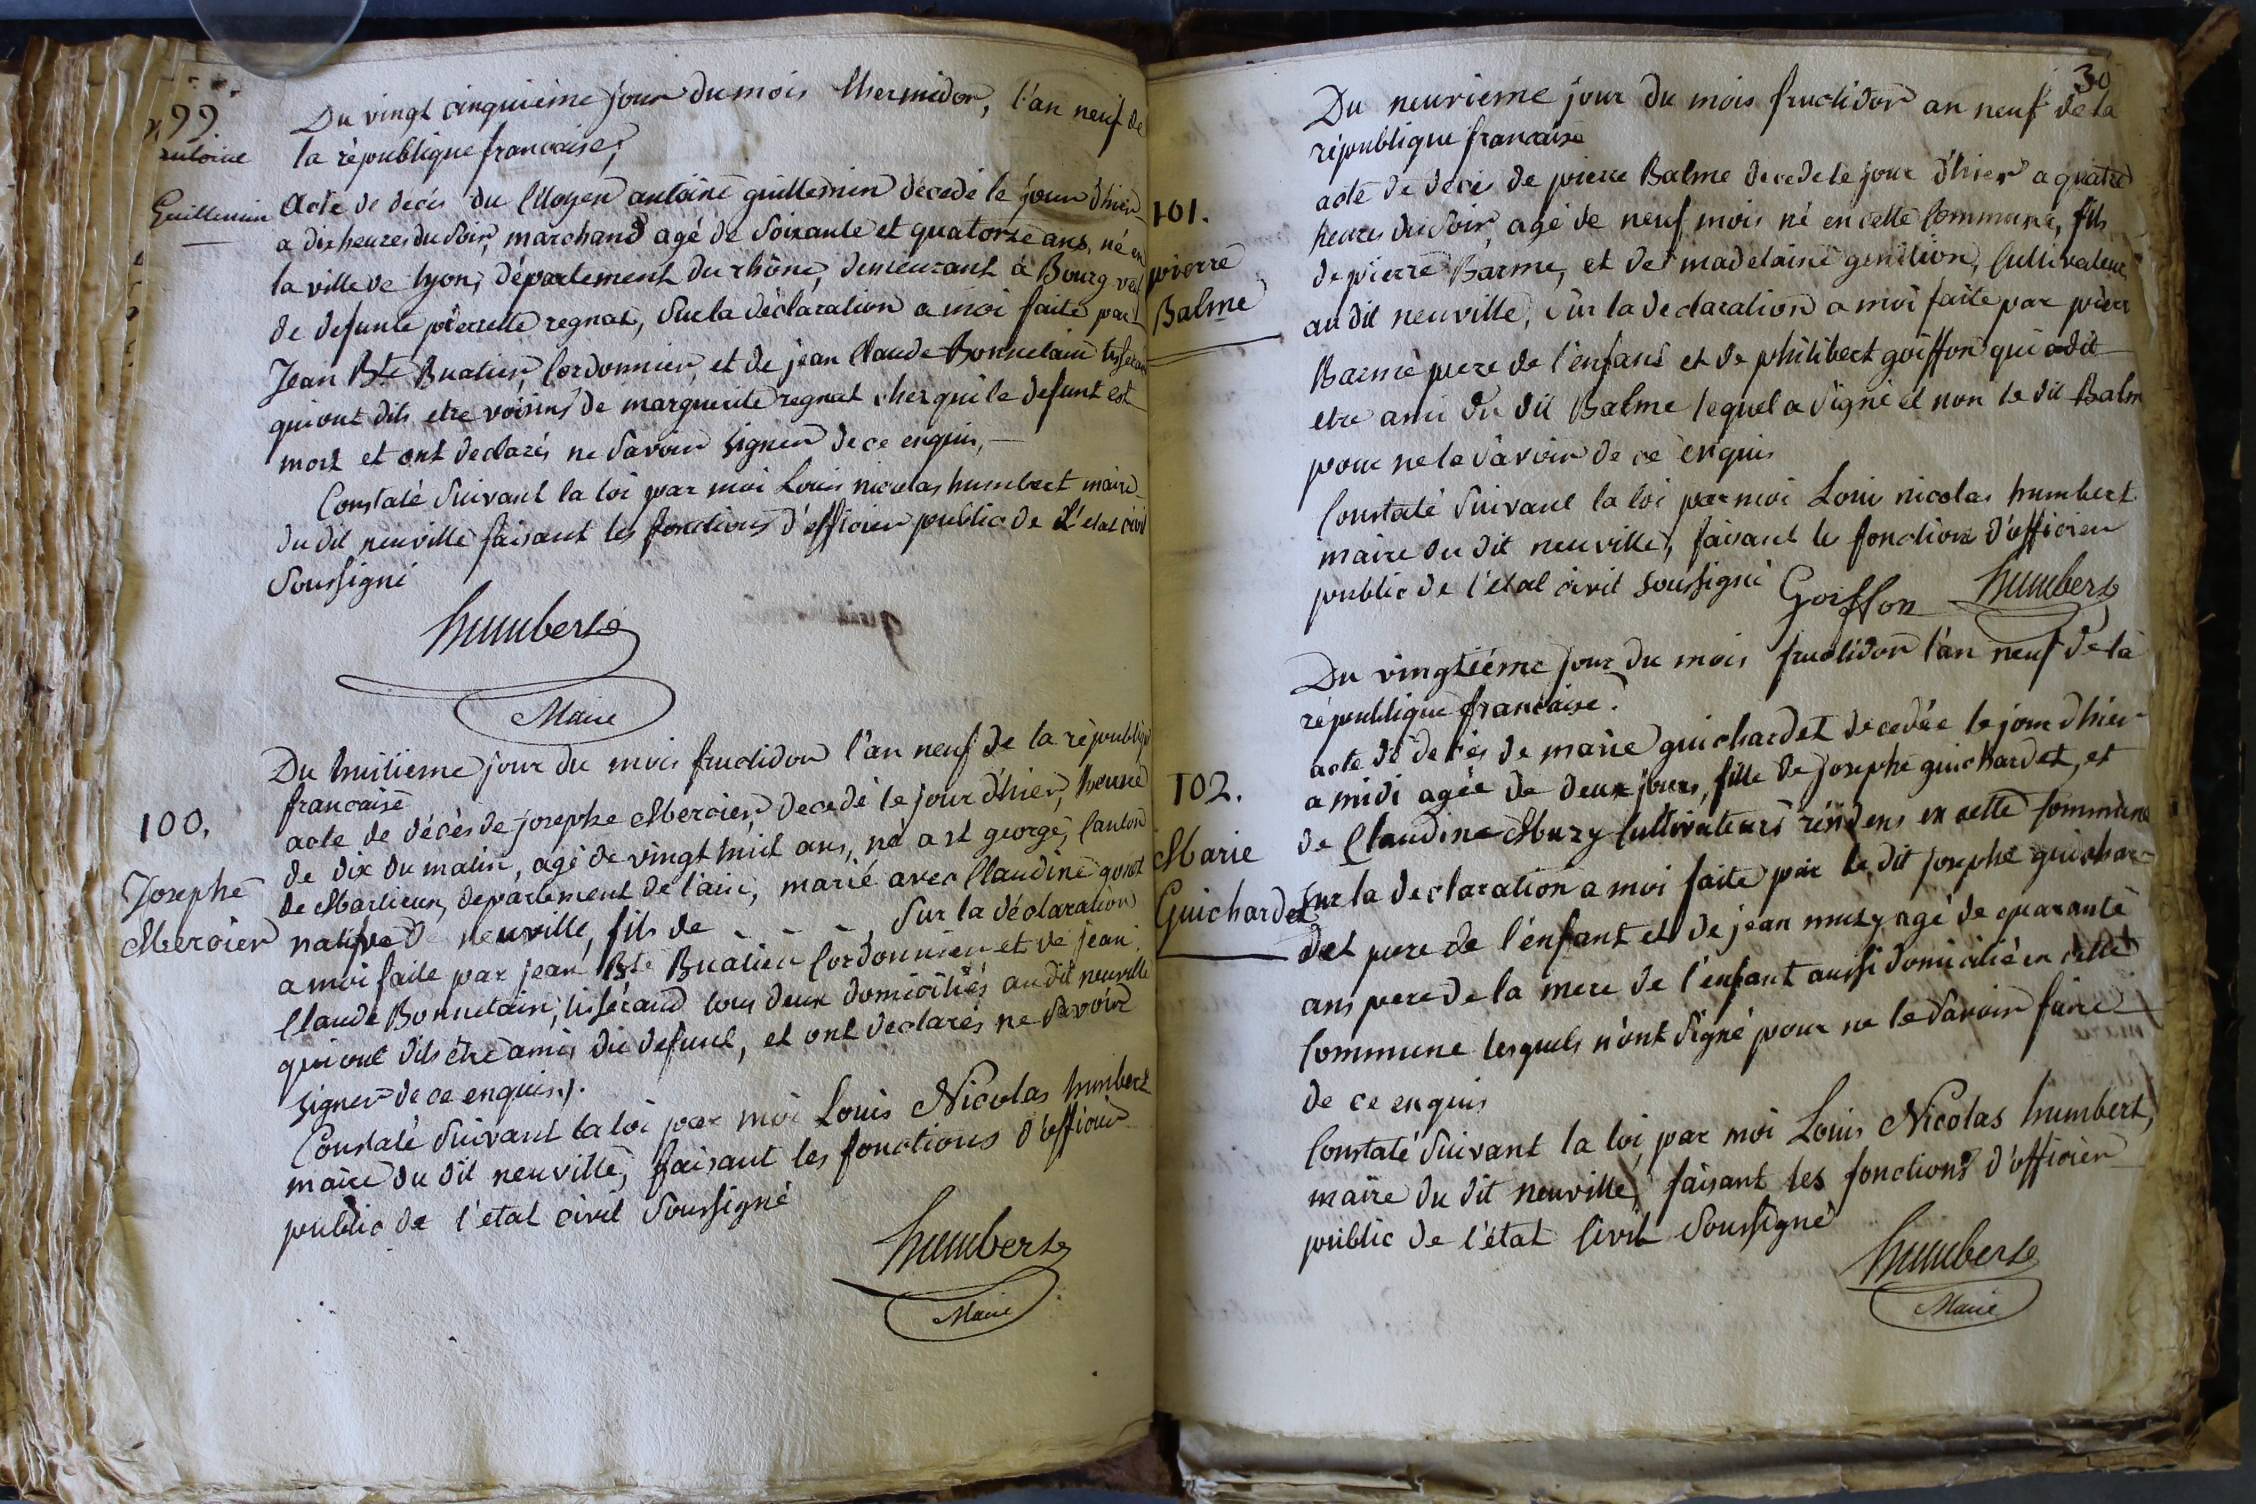 99.
antoine
Guillemin
Du vingt cinquieme jour du mois thermidor, l'an neuf de
la république francaise,
Acte de decés du Citoyen antoine guillemin décedé le jour d'hier
a dix heures du soir, marchand agé de soixante et quatorze ans, né en
la ville de lyon, département du rhône, demeurant à Bourg veuf
de defunte pierrette regnat, sur la déclaration a moi faite par
Jean Bte Buatier, Cordonnier, et de jean Claude Bonnetain tisserand
qui ont dits etre voisins de marguerite regnat chez qui le defunt est
mort et ont declarés ne savoir signer de ce enquis,
Constaté suivant la loi par moi Louis nicolas humbert maire
du dit neuville faisant les fonctions d'officier public de l'etat civil
soussigné
humbert
Maire
100.
Josephe
Mercier
Du huitieme jour du mois fructidor l'an neuf de la républiq
francaise
acte de décès de josephe Mercier, decedé le jour d'hier, heure
de dix du matin, agé de vingt huit ans, né a st george, Canton
de Marlieux, departement de l'ain, marié avec Claudine
native de neuville, fils de - - - , sur la déclaration
a moi faite par jean Bte Buatier Cordonnier et de jean
Claude Bonnetain, tisserand tous deux domiciliés au dit neuville
qui ont dits être amis du defunt, et ont declarés ne savoir
signer de ce enquis).
Constaté suivant la loi par moi Louis Nicolas humbert
maire du dit neuville, faisant les fonctions d'officier
public de l'état civil soussigné
humbert
Maire
30
101.
pierre
Balme
Du neuvieme jour du mois fructidor an neuf de la
république francaise
acte de decès de pierre Balme decede le jour d'hier a quatre
heures du soir, agé de neuf mois né en cette Commune, fils
de pierre Barme, et de madelaine, Cultivateur
au dit neuville, sur la declaration a moi faite par pierr
Barme pere de l'enfant et de philibert goiffon qui a dit
etre ami du dit Balme lequel a signé et non le dit Balm
pour ne le savoir de ce enquis
Constaté suivant la loi par moi Louis nicolas humbert
maire du dit neuville, faisant les fonctions d'officier
public de l'etat civil soussigné
Goiffon humbert
102.
Marie
Guichardet
Du vingtiéme jour du mois fructidor l'an neuf de la
république francaise.
acte de decès de marie guichardet decedée le jour d'hier
a midi agée de deux jours, fille de josephe guichardet, et
de Claudine Muzy Cultivateurs résidens en cette Commune
sur la declaration a moi faite par le dit josephe guichar-
det pere de l'enfant et de jean muzy agé de quarante
ans pere de la mere de l'enfant aussi domicilié en cette
Commune lesquels n'ont signé pour ne le savoir faire
de ce enquis
Constaté suivant la loi par moi Louis Nicolas humbert,
maire du dit neuville, faisant les fonctions d'officier
public de l'état Civil soussigné
humbert
Maire